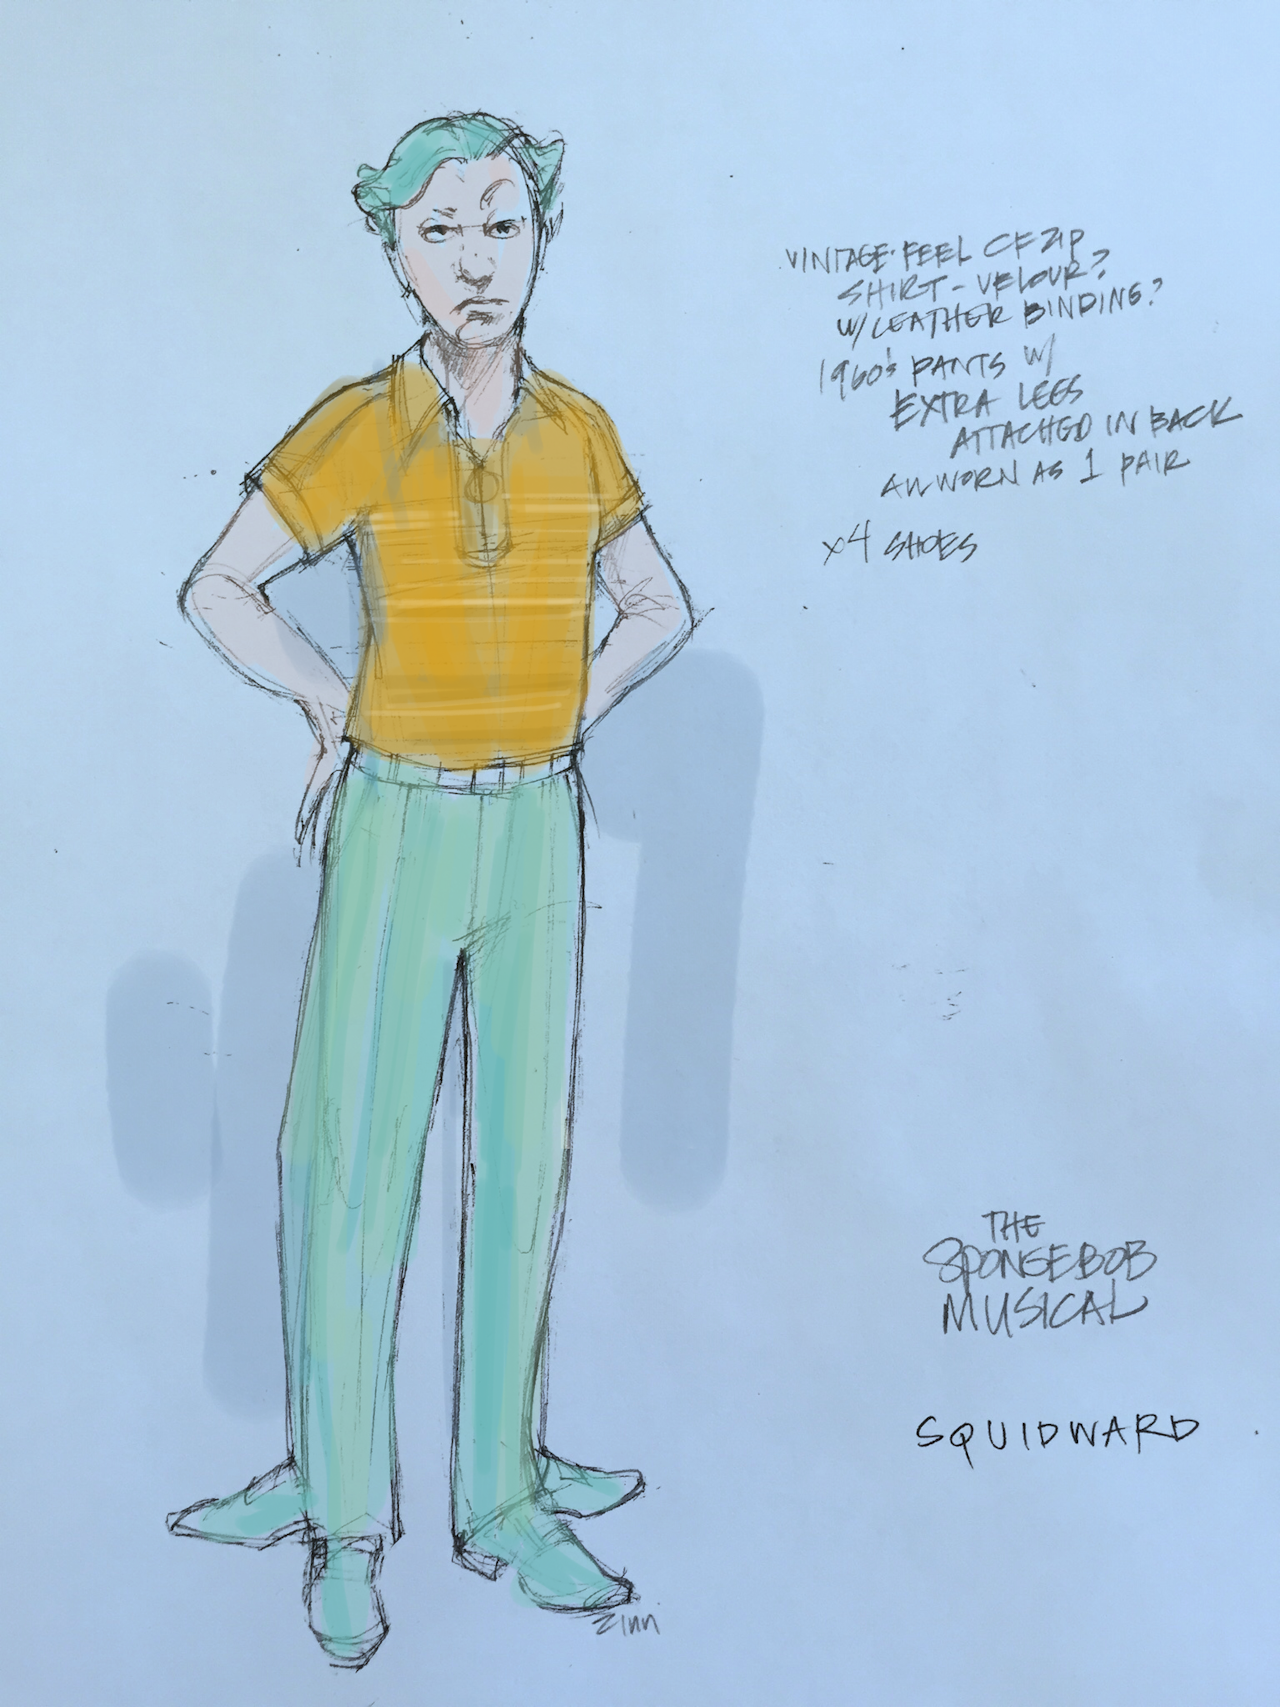 VINTAGE·FEEL CF ZIP
SHIRT - VELOUR?
W/LEATHER BINDING?
1960's PANTS W/
EXTRA LEGS
ATTACHED IN BACK
ALL WORN AS 1 PAIR
x4 SHOES
THE
SPONGEBOB
MUSICAL
SQUIDWARD
Zinn